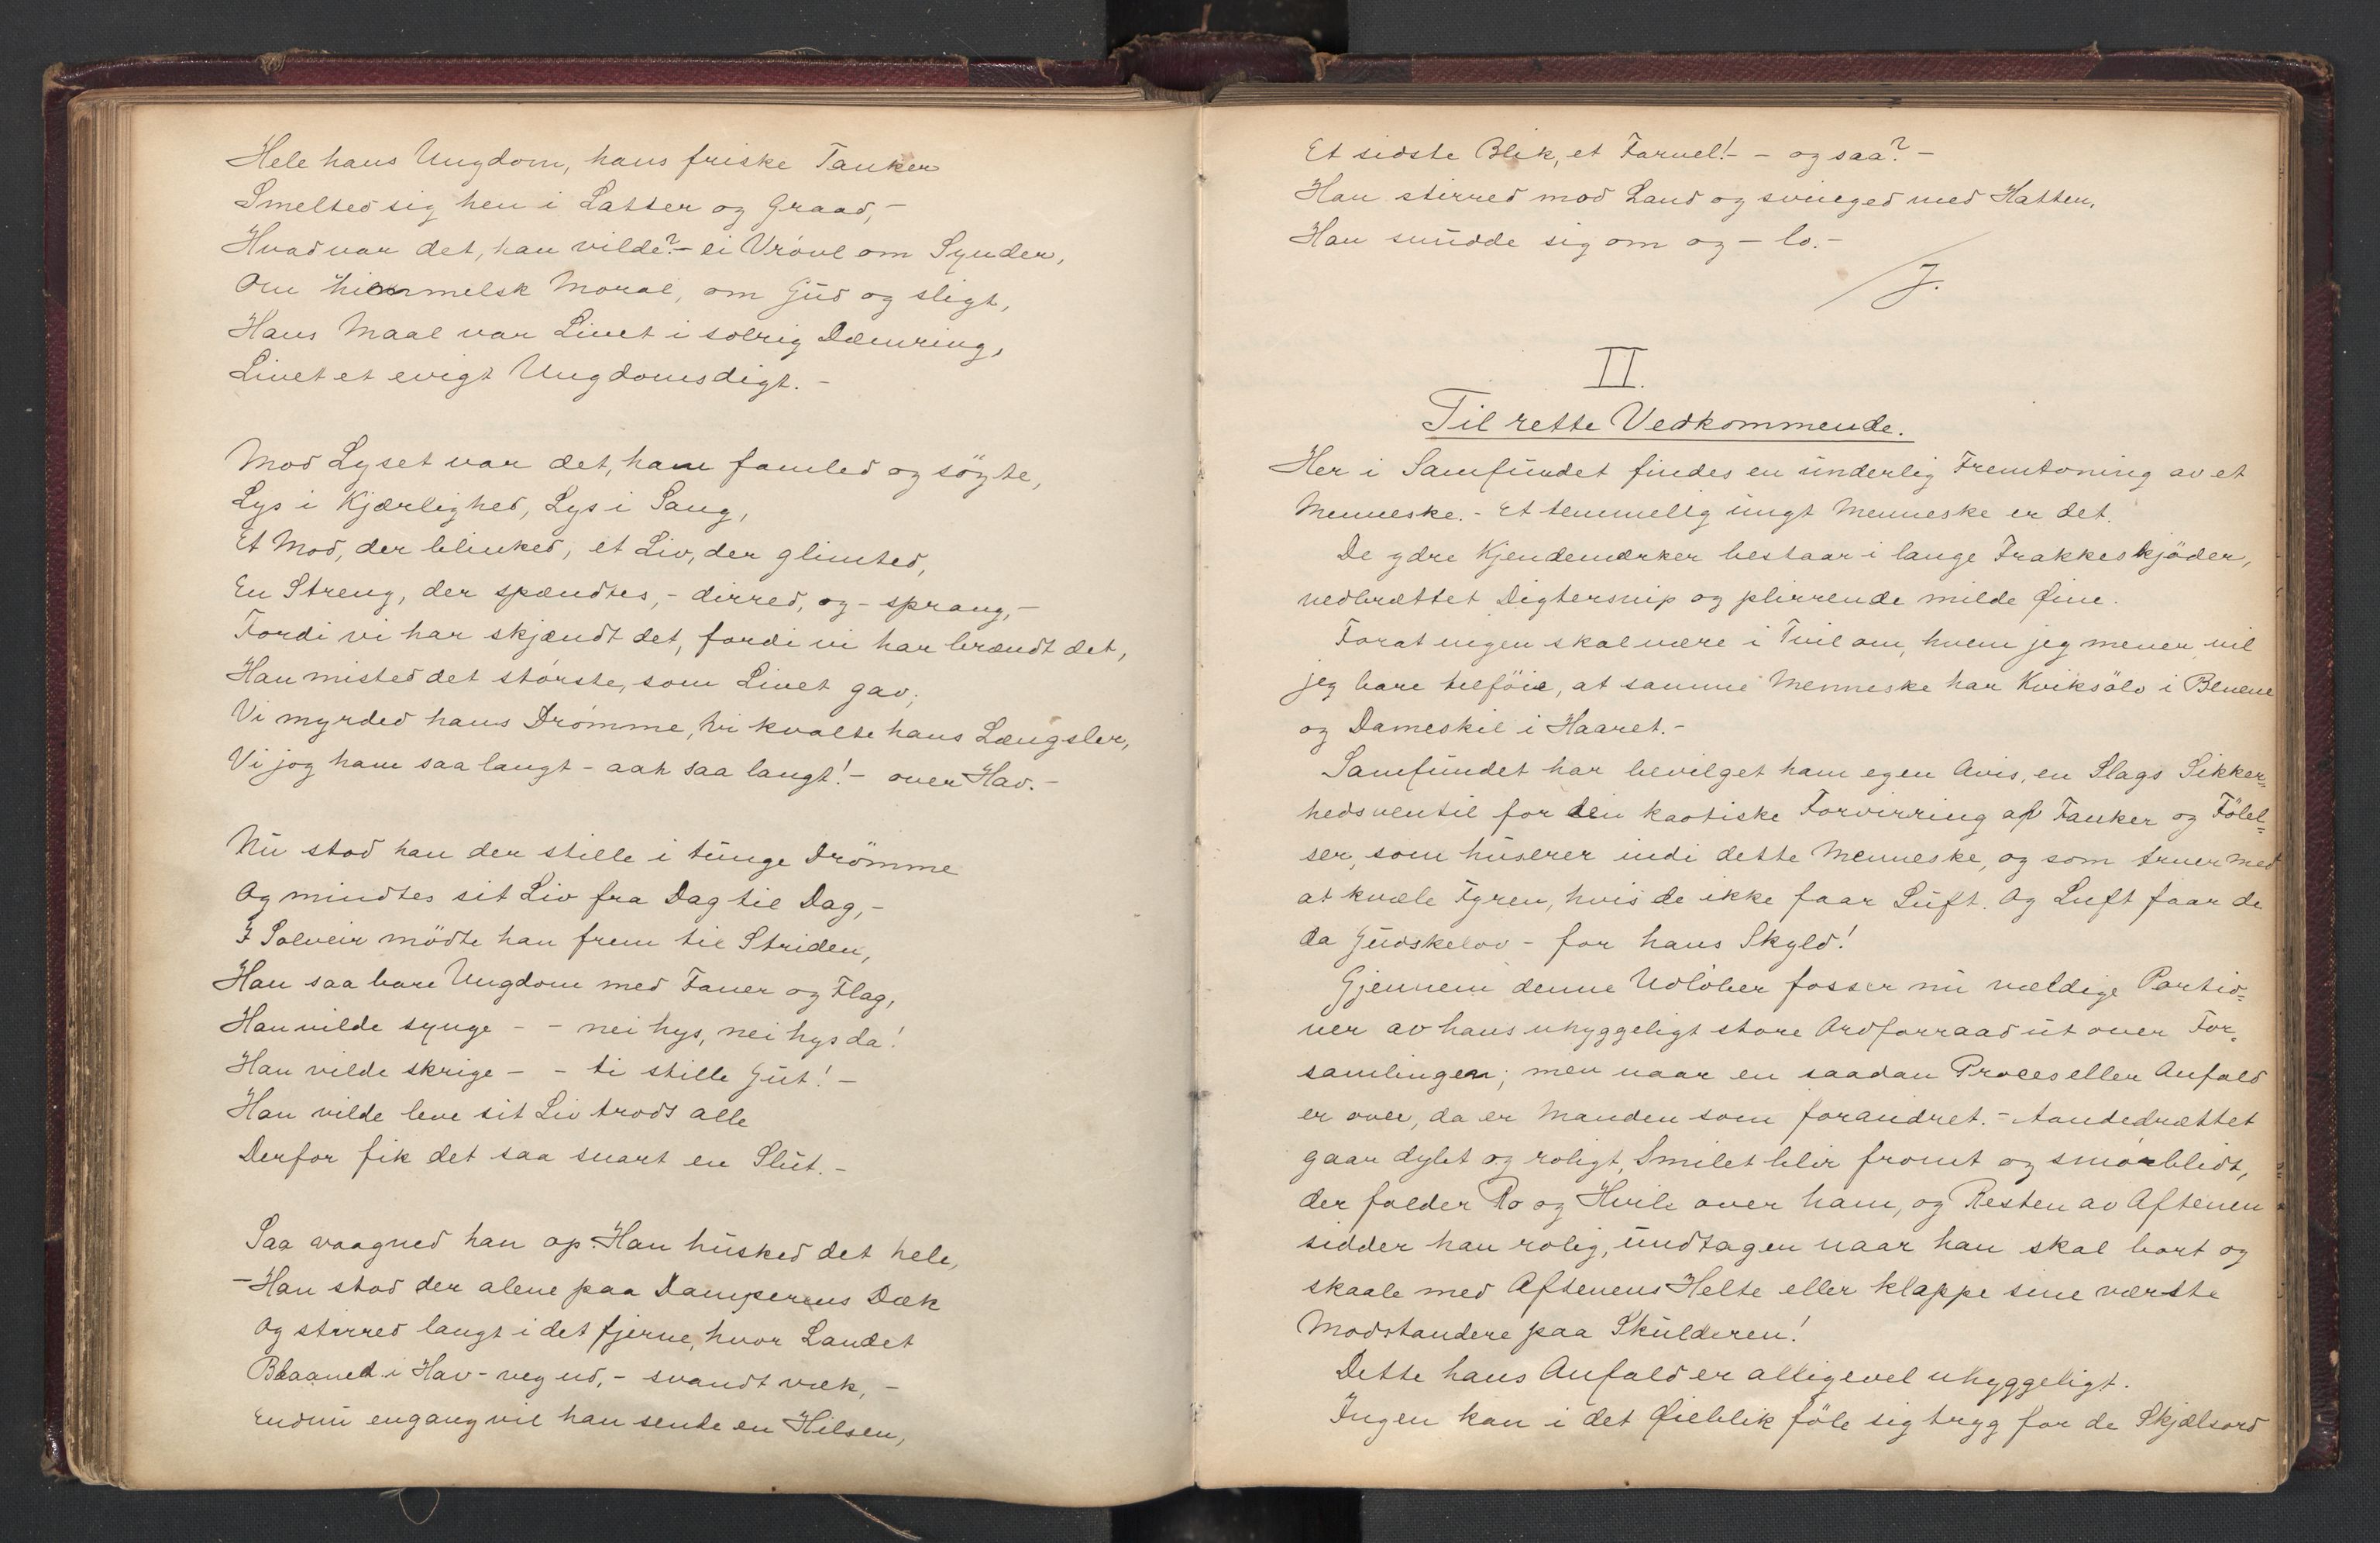 Hele hans Ungdom, hans friske Tanker
Smelted sig hen i Latter og Graad, -
Hvad var det, han vilde? - ei Vrövl om Synder,
Om himmelsk Moral, om Gud og sligt,
Hans Maal var Livet i solrig Dæmring,
Livet et evigt Ungdomsdigt. -
Mod Lyset var det, han famled og sögte,
Lys i Kjærlighed, Lys i Sang,
Et Mod, der blinked, et Liv, der glimted,
En Streng, der spændtes, - dirred, og - sprang, -
Fordi vi har skjændt det, fordi vi har brændt det,
Han misted det störste, som Livet gav;
Vi myrded hans Drömme, vi kvalte hans Længsler,
Vi jog ham saa langt - aah saa langt! - over Hav. -
Nu stod han der stille i tunge Drömme
Og mindtes sit Liv fra Dag til Dag, -
I Solveir mödte han frem til Striden,
Han saa bare Ungdom med Faner og Flag,
Han vilde synge - - nei hys, nei hys da!
Han vilde skrige - - ti stille Gut! -
Han vilde leve sit Liv trods alle
Derfor fik det saa snart en Slut. -
Saa vaagned han op. Han husked det hele,
- Han stod der alene paa Damperens Dæk
Og stirred langt i det fjerne, hvor Landet
Blaaned i Hav - veg ud, - svandt væk, -
Endnu engang vil han sende en Hilsen,
Et sidste Blik, et Farvel! - - og saa? -
Han stirred mod Land og svinged med Hatten,
Han snudde sig om og - lo. -
J.
II.
Til rette Vedkommende.
Her i Samfundet findes en underlig Fremtoning av et
Menneske. - Et temmelig ungt Menneske er det.
De ydre Kjendemærker bestaar i lange Frakkeskjöder,
nedbrættet Digtersnip og plirrende milde Øine.
Forat ingen skal være i Tvil om, hvem jeg mener vil
jeg bare tilföie, at samme Menneske har Kviksölv i Benene
og Dameskil i Haaret. -
Samfundet har bevilget ham egen Avis, en Slags Sikker-
hedsventil for den kaotiske Forvirring af Tanker og Fölel-
ser, som huserer indi dette Menneske, og som truer med
at kvæle Fyren, hvis de ikke faar Luft. Og Luft faar de
da Gudskelov - for hans Skyld!
Gjennem denne Udlöber fosser nu vældige Partio-
ner av hans uhyggeligt store Ordforraad ut over For-
samlingen; men naar en saadan Proces eller Anfald
er over, da er Manden som forandret. - Aandedrættet
gaar dybt og roligt, Smilet blir fromt og smörblidt,
der falder Ro og Hvile over ham, og Resten av Aftenen
sidder han rolig, undtagen naar han skal bort og
skaale med Aftenens Helte eller klappe sine værste
Modstandere paa Skulderen!
Dette hans Anfald er alligevel uhyggeligt.
Ingen kan i det Øieblik föle sig tryg for de Skjælsord